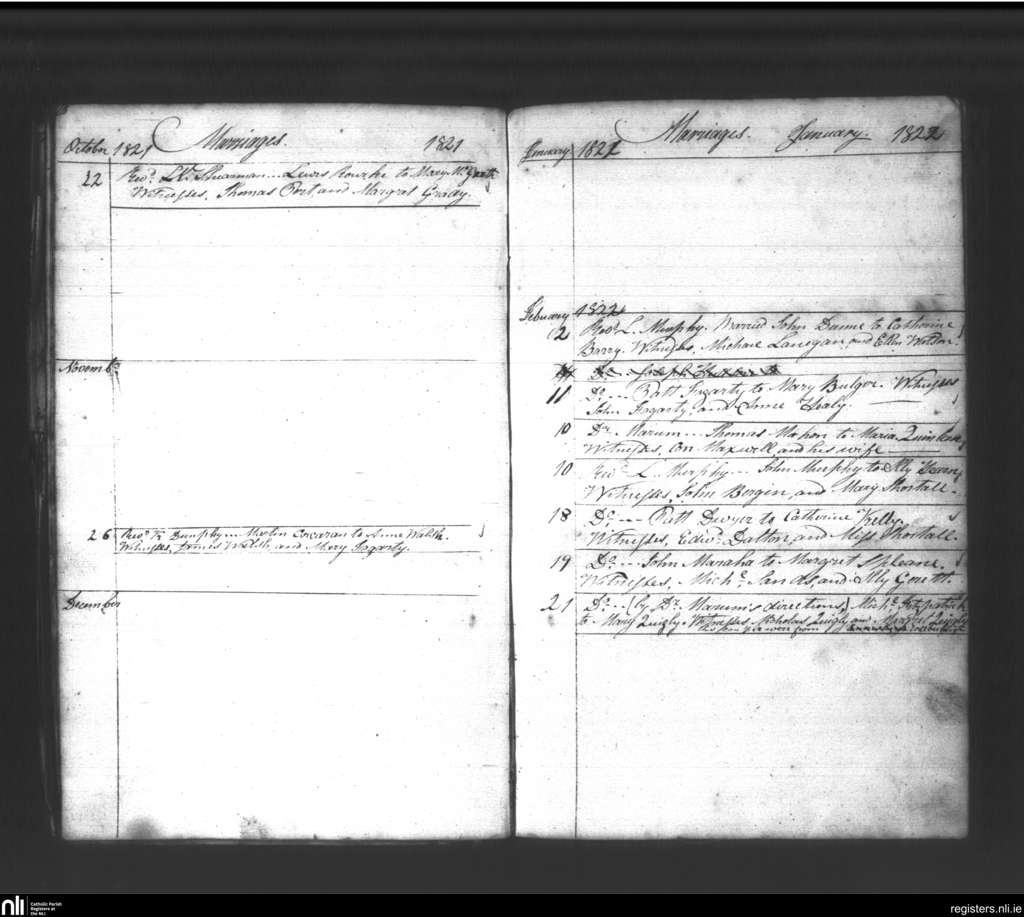 October 1821 Marriages. 1821
22 Revd. Shearman... Lewis Rourke to Mary McGrath
Witnesses, Thomas Port, and Margret Grady
November
26 Revd. Dunphy... Martin Corcoran to Anne Walsh.
Witnesses, James Walsh and Mary Fogarty.
December
January 1822 Marriages. January. 1822
February 1822
12 Revd. L. Murphy. Married John Dunne to Catherine
Barry. Witnesses, Michael Lanegan, and Ellen Weldon.
11 Do... Patt Fogarty to Mary Bulger. Witnesses
John Fogarty, and Anne Healy.
10 Dr. Marum... Thomas Mahon to Maria Quinlan,
Witnesses, Con Maxwell and his wife
10 Revd. L. Murphy... John Murphy to Ally
Witnesses, John Bergin, and Mary Shortall.
18 Do... Patt Dwyer to Catherine Kelly.
Witnesses, Edwd. Dalton, and Miss Shortall.
19 Do... John Manaha to Margret
Witnesses, Michl. Sands, and Ally
21 Do... (by Dr. Marum's directions,) Michl. Fitzpatrick
to Mary Quigly. Witnesses Nicholas Quigly and Margret Quigly
nli Catholic Parish
Registers at
the NLI
registers.nli.ie